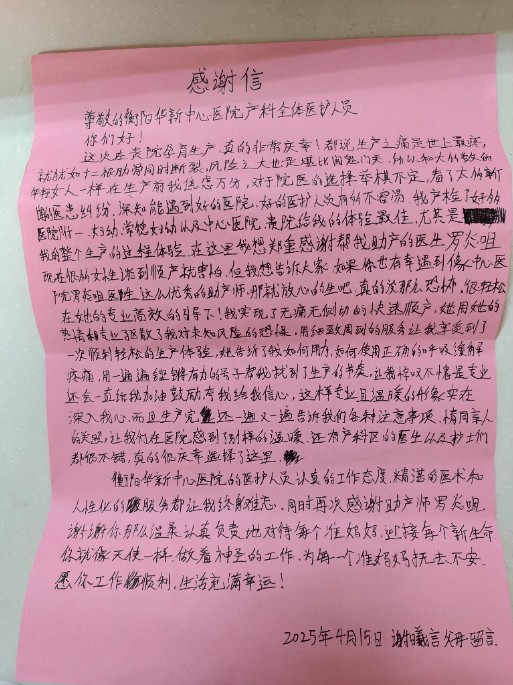 感谢信
尊敬的衡阳华新中心医院产科全体医护人员
你们好！
这次在贵院孕育生产，真的非常庆幸！都说生产之痛是世上最疼，
就犹如十二根肋骨同时断裂，风险之大也是堪比闯鬼门关，所以和大多数的
年轻女人一样在生产前我焦虑万分，对于院医的选择举棋不定，看了太多的新闻
医患纠纷，深知能遇到好的医院、好的医护人员有多不容易，我产检了好多的
医院附一、妇幼、常院妇幼以及中心医院，贵院给我的体验最佳，尤其是
我的整个生产的过程体验，在这里我想郑重感谢帮我助产的医生罗长咀
现在很多女性谈到顺产就害怕，但我想告诉大家，如果你也有幸遇到像中心医
院罗长咀医生这么优秀的助产师，那就放心的生吧，真的没那么恐怖，很轻松
在她的专业高效的引导下！我实现了无痛无侧切的快速顺产，她用她的
热情和专业驱散了我对未知风险的恐惧，用细致周到的服务让我享受到了
一次顺利轻松的生产体验，她告诉了我如何用力，如何使用正确的呼吸缓解
疼痛，用一遍遍铿锵有力的
还会一直给我加油鼓励考我给我信心，这样专业且温暖的形象实在
深入我心，而且生产完还一遍又一遍告诉我们各种注意事项，情同亲人
的关照，让我们在医院感到了别样的温暖，还有产科区的医生以及护士们
都很不错，真的很庆幸选择了这里。
衡阳华新中心医院的医护人员认真的工作态度、精湛的医术和
人性化的服务都让我终身难忘，同时再次感谢助产师罗长咀
谢谢你那么温柔认真负责地对待每个准妈妈，迎接每个新生命
你就像天使一样，做着神圣的工作，为每一个准妈妈抚去不安
愿你工作顺利，生活充满幸运！
2025年4月15日 谢曦言父母留言